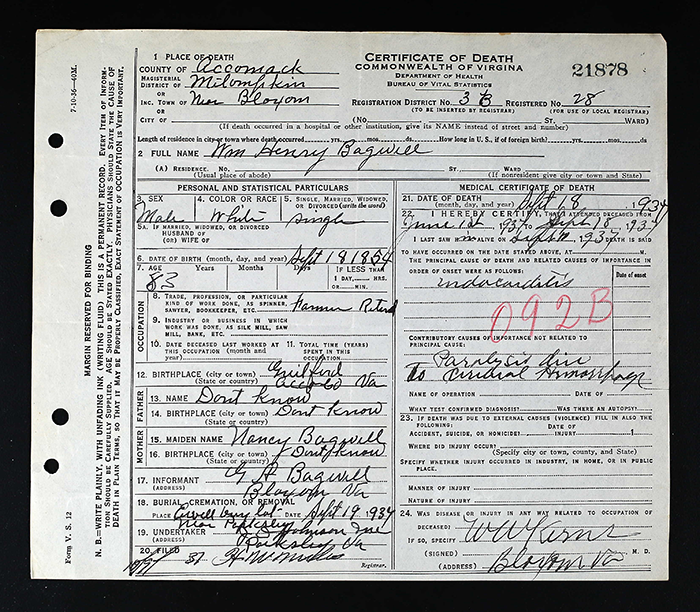 7-10-36—40M.
MARGIN RESERVED FOR BINDING
N. B.—WRITE PLAINLY, WITH UNFADING INK (WRITING FLUID) THIS IS A PERMANENT RECORD. Every Item of Information Should be Carefully Supplied. AGE Should be Stated EXACTLY. PHYSICIANS Should State the CAUSE OF DEATH in Plain Terms, so that it May be Properly Classified. Exact Statement of OCCUPATION is Very Important.
Form V. S. 12
1 PLACE OF DEATH
COUNTY OF Accomack
MAGISTERIAL DISTRICT OF
OR
INC. TOWN OF Near Bloxom
CERTIFICATE OF DEATH
COMMONWEALTH OF VIRGINIA
DEPARTMENT OF HEALTH
BUREAU OF VITAL STATISTICS
21878
REGISTRATION DISTRICT NO. 3B REGISTERED NO. 28
(TO BE INSERTED BY REGISTRAR) (FOR USE OF LOCAL REGISTRAR)
(No. ST. WARD)
(If death occurred in a hospital or other institution, give its NAME instead of street and number)
Length of residence in city or town where death occurred yrs. mos. ds. How long in U. S., if of foreign birth? yrs. mos. ds.
2 FULL NAME Wm Henry Bagwell
(A) RESIDENCE. No. ST. WARD
(Usual place of abode) (If nonresident give city or town and State)
PERSONAL AND STATISTICAL PARTICULARS
3. SEX
Male
4. COLOR OR RACE
White
5. SINGLE, MARRIED, WIDOWED, OR DIVORCED (write the word)
Single
5A. IF MARRIED, WIDOWED, OR DIVORCED
HUSBAND OF
(OR) WIFE OF
6. DATE OF BIRTH (month, day, and year) Sept 18 1854
7. AGE YEARS MONTHS DAYS IF LESS THAN
83
1 DAY, HRS.
OR MIN.
OCCUPATION
8. TRADE, PROFESSION, OR PARTICULAR KIND OF WORK DONE, AS SPINNER, SAWYER, BOOKKEEPER, ETC. Farmer Retired
9. INDUSTRY OR BUSINESS IN WHICH WORK WAS DONE, AS SILK MILL, SAW MILL, BANK, ETC.
10. DATE DECEASED LAST WORKED AT THIS OCCUPATION (month and year)
11. TOTAL YEARS (TIME) SPENT IN THIS OCCUPATION
12. BIRTHPLACE (city or town) Guilford
(State or country) Acco Co Va
FATHER
13. NAME Dont Know
14. BIRTHPLACE (city or town) Dont Know
(State or country)
MOTHER
15. MAIDEN NAME Nancy Bagwell
16. BIRTHPLACE (city or town) Dont Know
(State or country)
17. INFORMANT Bagwell
(ADDRESS) Bloxom Va
18. BURIAL, CREMATION, OR REMOVAL
PLACE Near Parksley DATE Sept 19, 1937
19. UNDERTAKER Johnson
(ADDRESS) Parksley Va
20. FILED 37
Registrar.
MEDICAL CERTIFICATE OF DEATH
21. DATE OF DEATH Sept 18, 1937
22. I HEREBY CERTIFY, THAT I ATTENDED DECEASED FROM
June 1st, 1937, TO Sept 18, 1937
I LAST SAW H ALIVE ON Sept, 1937 DEATH IS SAID
TO HAVE OCCURRED ON THE DATE STATED ABOVE, AT M.
THE PRINCIPAL CAUSE OF DEATH AND RELATED CAUSES OF IMPORTANCE IN ORDER OF ONSET WERE AS FOLLOWS:
Date of onset
Endocarditis
092B
CONTRIBUTORY CAUSES OF IMPORTANCE NOT RELATED TO PRINCIPAL CAUSE:
Paralysis due
To Cerebral Hemorrhage
NAME OF OPERATION DATE OF
WHAT TEST CONFIRMED DIAGNOSIS? WAS THERE AN AUTOPSY?
23. IF DEATH WAS DUE TO EXTERNAL CAUSES (VIOLENCE) FILL IN ALSO THE FOLLOWING:
ACCIDENT, SUICIDE, OR HOMICIDE? DATE OF INJURY 1
WHERE DID INJURY OCCUR?
(Specify city or town, county, and State)
SPECIFY WHETHER INJURY OCCURRED IN INDUSTRY, IN HOME, OR IN PUBLIC PLACE.
MANNER OF INJURY
NATURE OF INJURY
24. WAS DISEASE OR INJURY IN ANY WAY RELATED TO OCCUPATION OF DECEASED?
IF SO, SPECIFY
(SIGNED) W W Kerns M. D.
(ADDRESS) Bloxom Va